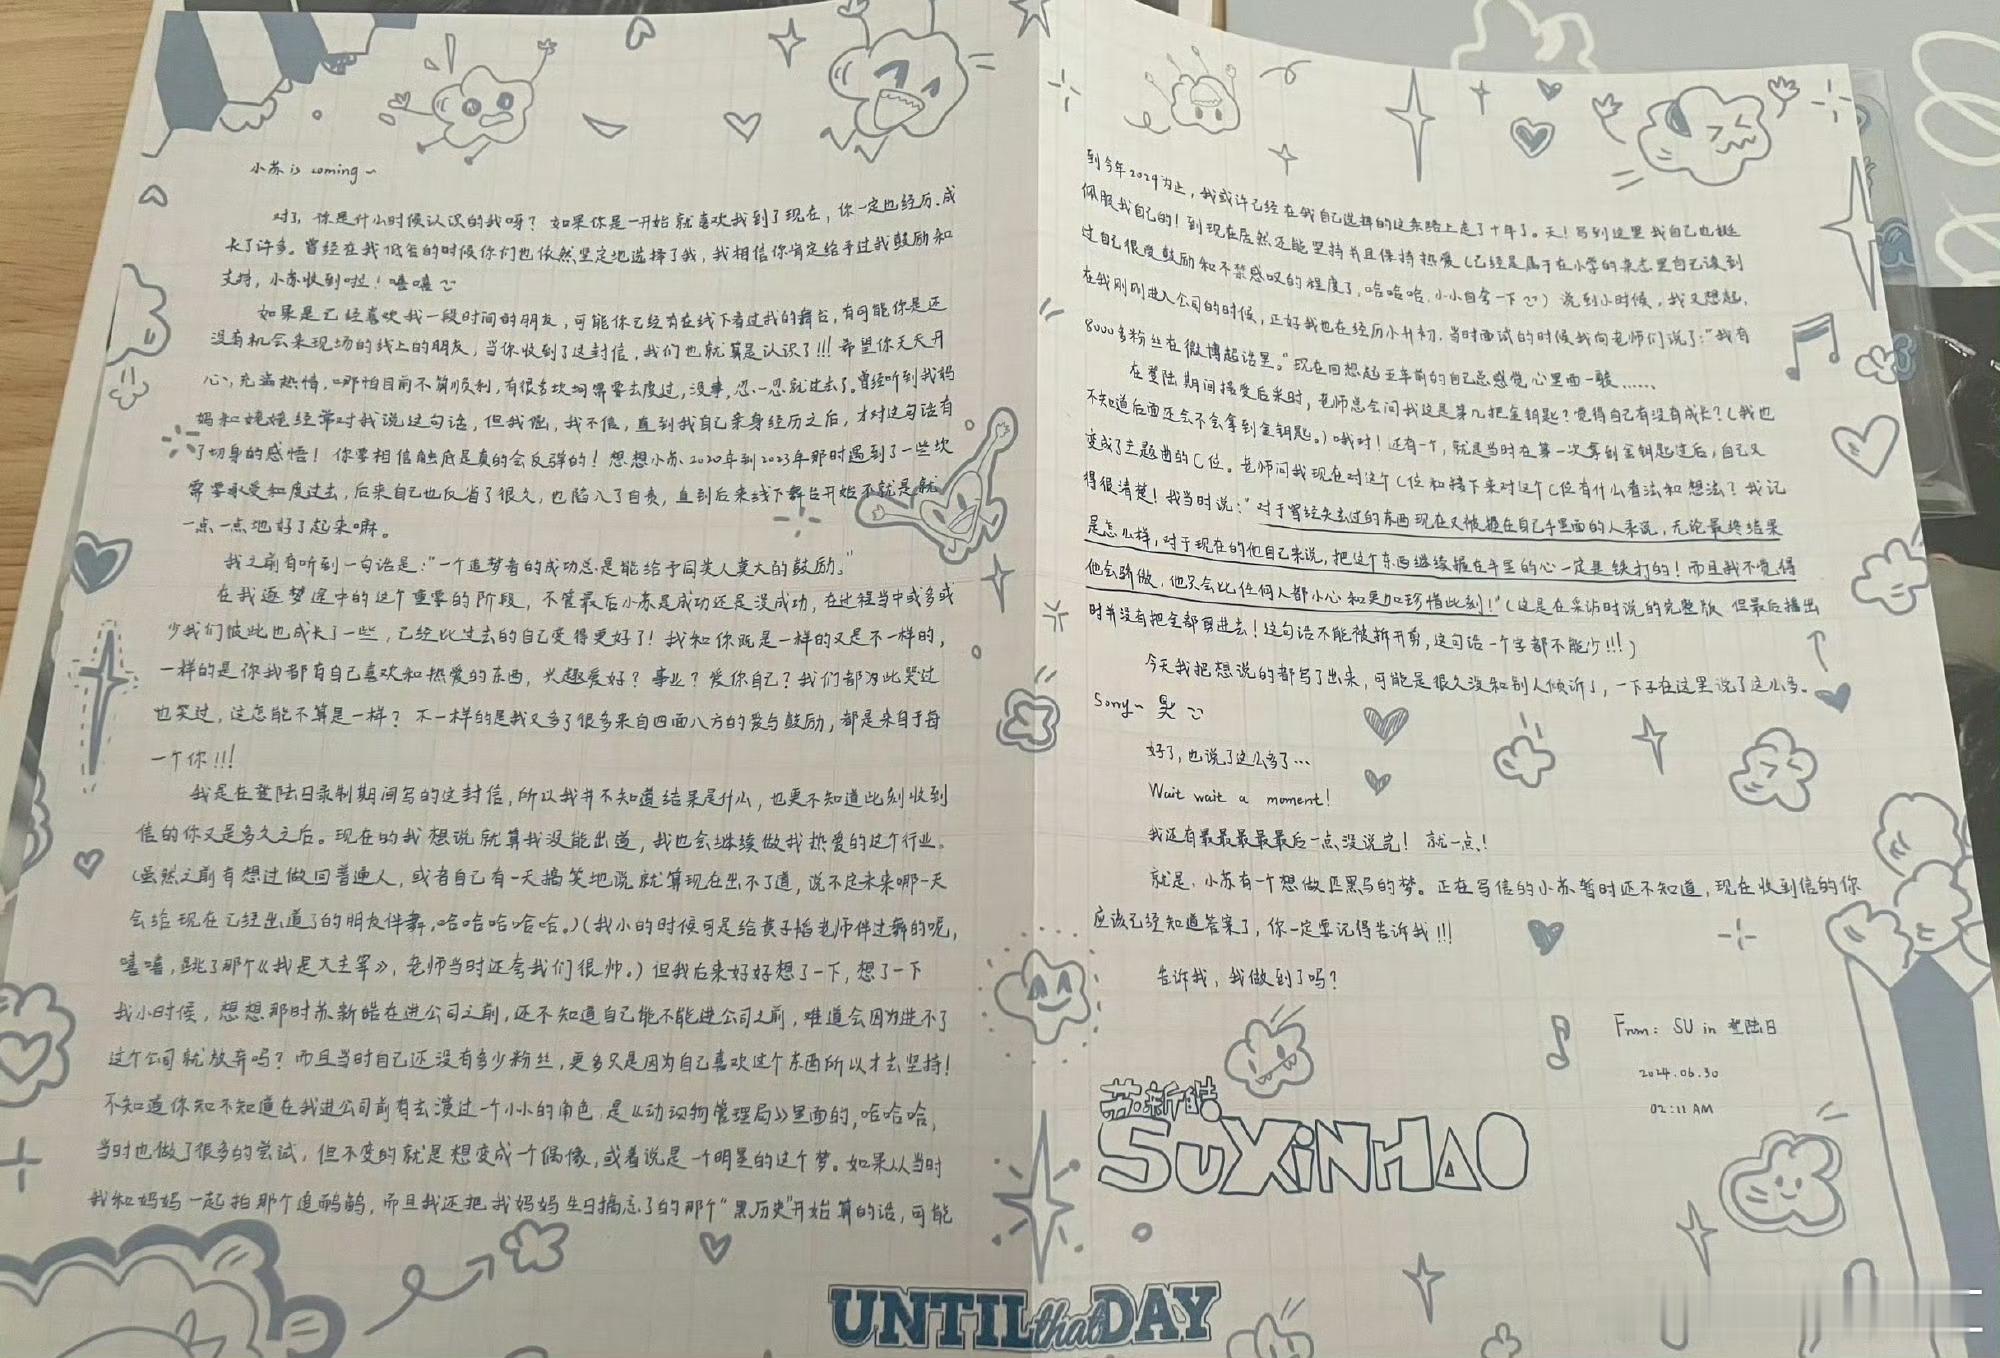 小苏is coming~
对了,你是什么时候认识的我呀?如果你是一开始就喜欢我到了现在,你一定也经历.成
长了许多。曾经在我低谷的时候你们也依然坚定地选择了我,我相信你肯定给予过我鼓励和
支持,小苏收到啦!嘻嘻
如果是已经喜欢我一段时间的朋友,可能你已经有在线下看过我的舞台,有可能你是还
没有机会来现场的线上的朋友,当你收到了这封信,我们也就算是认识了!!!希望你天天开
心,充满热情,哪怕目前不算顺利,有很多坎坷需要去度过,没事,忍一忍就过去了。曾经听到我妈
妈和姥姥经常对我说这句话,但我倔,我不信,直到我自己亲身经历之后,才对这句话有
了切身的感悟!你要相信触底是真的会反弹的!想想小苏2020年到2023年那时遇到了一些坎
需要承受和度过去,后来自己也反省了很久,也陷入了自责,直到后来线下舞台开始不就是就
一点一点地好了起来嘛。
我之前有听到一句话是:“一个追梦者的成功总是能给予同类人莫大的鼓励。”
在我逐梦途中的这个重要的阶段,不管最后小苏是成功还是没成功,在过程当中或多或
少我们彼此也成长了一些,已经比过去的自己变得更好了!我和你既是一样的又是不一样的,
一样的是你我都有自己喜欢和热爱的东西,兴趣爱好?事业?爱你自己?我们都为此哭过
也笑过,这怎能不算是一样?不一样的是我又多了很多来自四面八方的爱与鼓励,都是来自于每
一个你!!!
我是在登陆日录制期间写的这封信,所以我并不知道结果是什么,也更不知道此刻收到
信的你又是多久之后。现在的我想说就算我没能出道,我也会继续做我热爱的这个行业。
(虽然之前有想过做回普通人,或者自己有一天搞笑地说就算现在出不了道,说不定未来哪一天
会给现在已经出道了的朋友伴舞,哈哈哈哈哈。)(我小的时候可是给黄子韬老师伴过舞的呢,
嘻嘻,跳了那个《我是大主宰》,老师当时还夸我们很帅。)但我后来好好想了一下,想了一下
我小时候,想想那时苏新皓在进公司之前,还不知道自己能不能进公司之前,难道会因为进不了
这个公司就放弃吗?而且当时自己还没有多少粉丝,更多只是因为自己喜欢这个东西所以才去坚持!
不知道你知不知道在我进公司前有去演过一个小小的角色,是《动物管理局》里面的,哈哈哈,
当时也做了很多的尝试,但不变的就是想变成一个偶像,或者说是一个明星的这个梦。如果从当时
我和妈妈一起拍那个追鹌鹑,而且我还把我妈妈生日搞忘了的那个“黑历史”开始算的话,可能
到今年2024为止,我或许已经在我自己选择的这条路上走了十年了。天!写到这里我自己也挺
佩服我自己的!到现在居然还能坚持并且保持热爱(已经是属于在小学的杂志里自己读到
过自己很受鼓励和不禁感叹的程度了,哈哈哈,小小自夸一下)说到小时候,我又想起,
在我刚刚进入公司的时候,正好我也在经历小升初,当时面试的时候我向老师们说了:“我有
8000多粉丝在微博超话里。”现在回想起五年前的自己总感觉心里面一酸……
在登陆期间接受后采时,老师总会问我这是第几把金钥匙?觉得自己有没有成长?(我也
不知道后面还会不会拿到金钥匙。)哦对!还有一个,就是当时在第一次拿到金钥匙过后,自己又
变成了主题曲的C位。老师问我现在对这个C位和接下来对这个C位有什么看法和想法?我记
得很清楚!我当时说:“对于曾经失去过的东西现在又被握在自己手里面的人来说,无论最终结果
是怎么样,对于现在的他自己来说,把这个东西继续握在手里的心一定是铁打的!而且我不觉得
他会骄傲,他只会比任何人都小心和更加珍惜此刻!”(这是在采访时说的完整版 但最后播出
时并没有把全部剪进去!这句话不能被拆开剪,这句话一个字都不能少!!!)
今天我把想说的都写了出来,可能是很久没和别人倾诉了,一下子在这里说了这么多。
Sorry~
好了,也说了这么多了…
Wait wait a moment!
我还有最最最最最后一点没说完!就一点!
就是,小苏有一个想做匹黑马的梦。正在写信的小苏暂时还不知道,现在收到信的你
应该已经知道答案了,你一定要记得告诉我!!!
告诉我,我做到了吗?
From: SU in 登陆日
2024.06.30
02:11 AM
苏新皓
SUXiNHAO
UNTIL that DAY